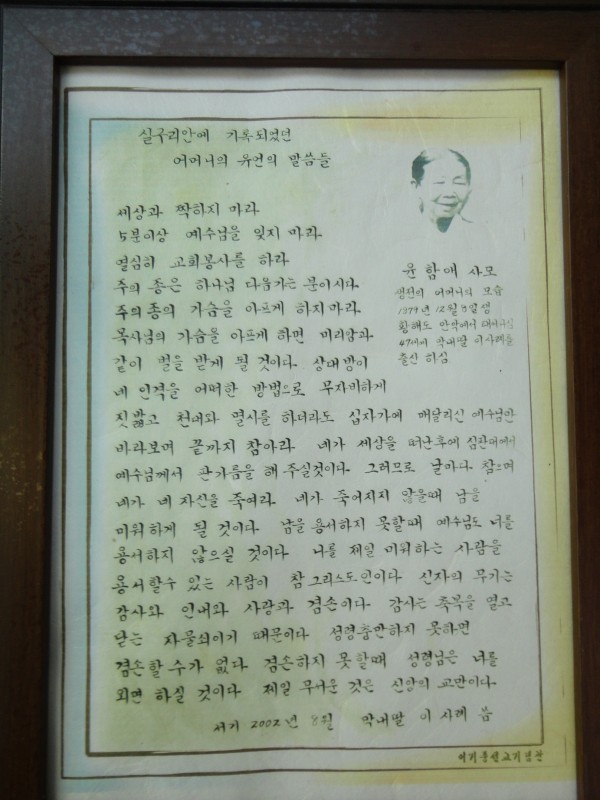 실구리안에 기록되었던
어머니의 유언의 말씀들
세상과 짝하지 마라
5분이상 예수님을 잊지 마라
열심히 교회봉사를 하라
주의 종은 하나님 다음가는 분이시다
주의 종의 가슴을 아프게 하지 마라
목사님의 가슴을 아프게 하면 미리암과
같이 벌을 받게 될 것이다. 상대방이
네 인격을 어떠한 방법으로 무자비하게
짓밟고 천대와 멸시를 하더라도 십자가에 매달리신 예수님만
바라보며 끝까지 참아라 네가 세상을 떠난후에 심판대에서
예수님께서 판가름을 해 주실것이다 그러므로 날마다 참으며
네가 네 자신을 죽여라 네가 죽어지지 않을때 남을
미워하게 될 것이다 남을 용서하지 못할때 예수님도 너를
용서하지 않으실 것이다 나를 제일 미워하는 사람을
용서할수 있는 사람이 참 그리스도인이다 신자의 무기는
감사와 인내와 사랑과 겸손이다 감사는 축복을 열고
닫는 자물쇠이기 때문이다 성령충만하지 못하면
겸손할 수가 없다 겸손하지 못할때 성령님은 너를
외면 하실 것이다 제일 무서운 것은 신앙의 교만이다
서기 2002년 8월 막내딸 이 사례 씀
윤함애 사모
생전의 어머니의 모습
1879년 12월 8일생
황해도 안악에서
47세에 막내딸 이사례를
출산 하심
이기풍선교기념관